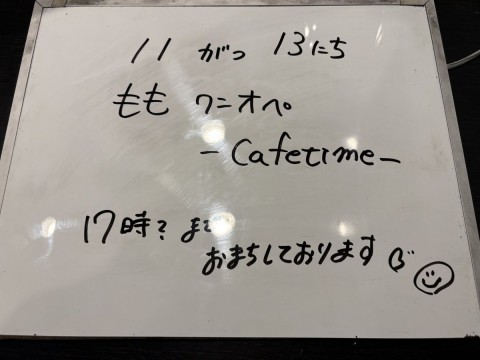 11 がつ 13にち
もも ワニオペ
- Cafetime -
17時? まで
おまちしております